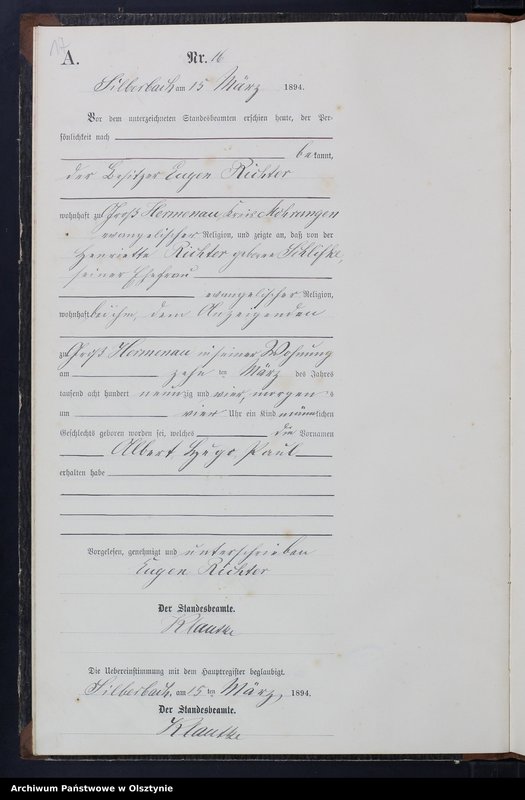 17
A.
Nr. 16
Silberbach, am 15 März 1894.
Vor dem unterzeichneten Standesbeamten erschien heute, der Per-
sönlichkeit nach
bekannt,
der Besitzer Eugen Richter
wohnhaft zu Groß Hermenau Kreis Mohrungen
evangelischer Religion, und zeigte an, daß von der
Henriette Richter geborene Schlifke,
seiner Ehefrau
evangelischer Religion,
wohnhaft bei ihm, dem Anzeigenden
zu Groß Hermenau in seiner Wohnung
am zehn ten März des Jahres
tausend acht hundert neunzig und vier, morgens
um vier Uhr ein Kind männlichen
Geschlechts geboren worden sei, welches die Vornamen
Albert Hugo Paul
erhalten habe
Vorgelesen, genehmigt und unterschrieben
Eugen Richter
Der Standesbeamte.
Klautke
Die Uebereinstimmung mit dem Hauptregister beglaubigt.
Silberbach, am 15 ten März, 1894.
Der Standesbeamte.
Klautke
Archiwum Państwowe w Olsztynie